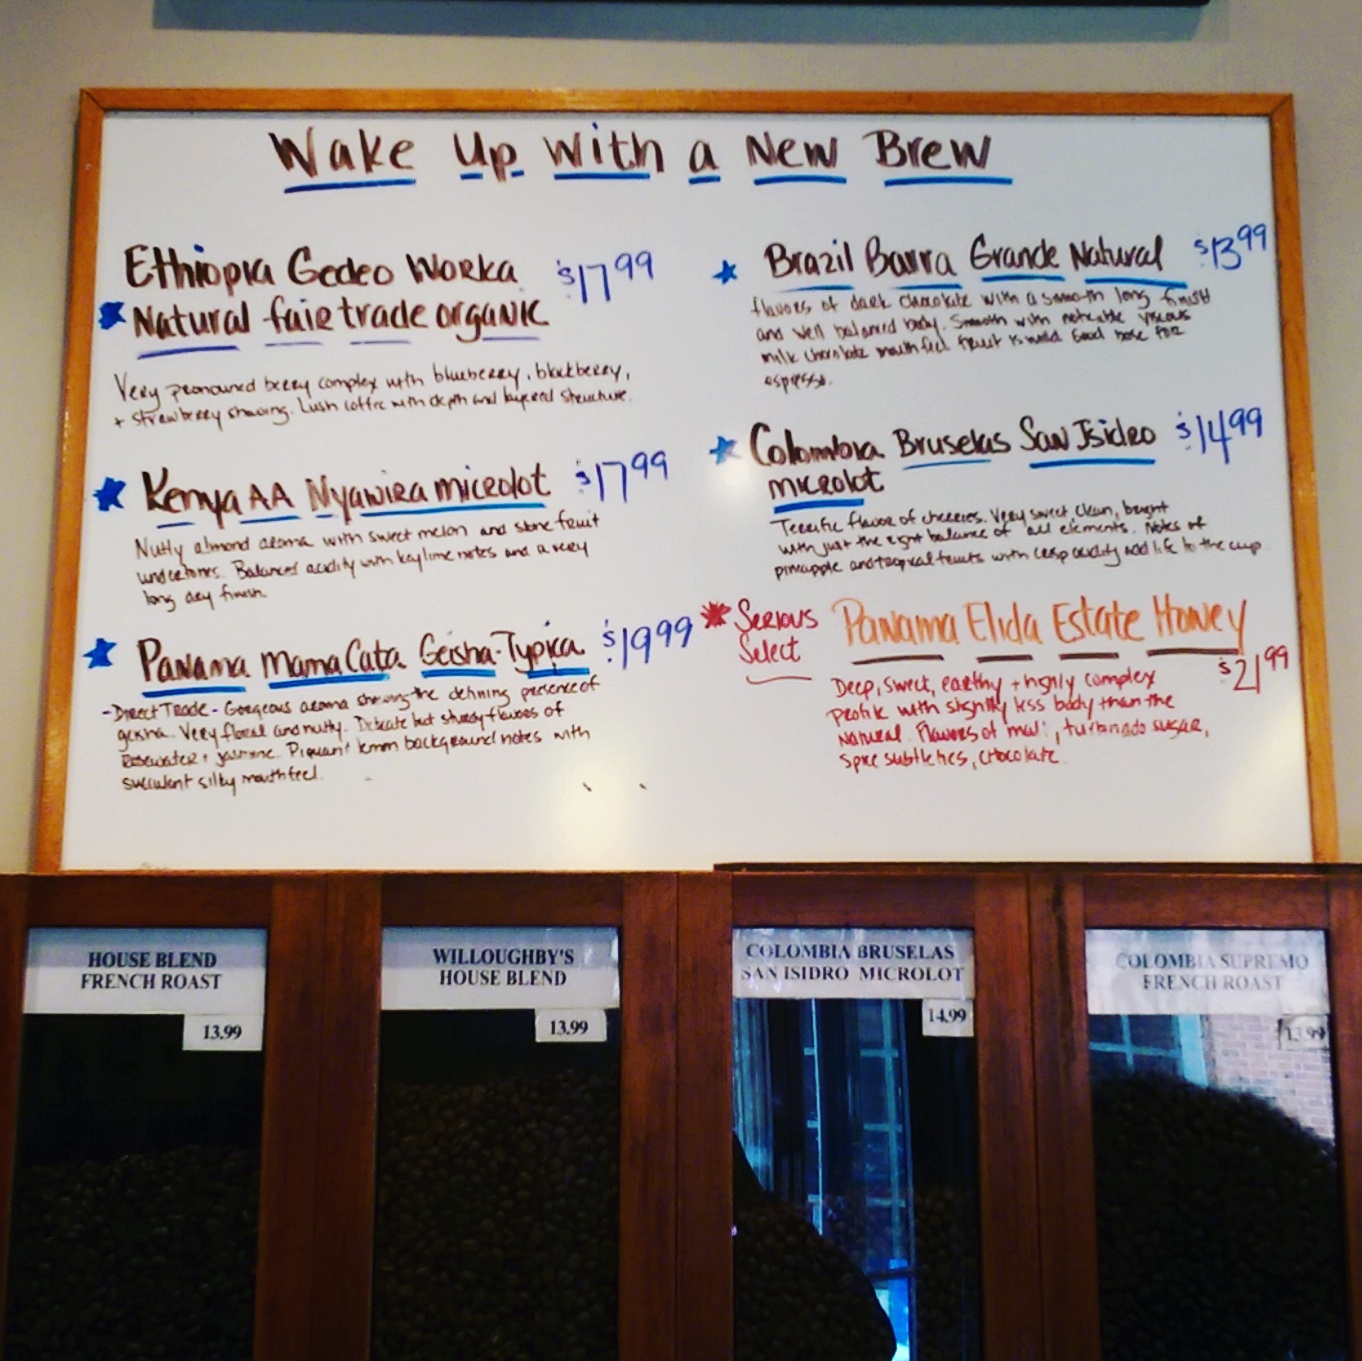 Wake Up With a New Brew
Ethiopia Gedeo Worka $17.99
Natural fair trade organic
Very pronounced berry complex with blueberry, blackberry,
+ strawberry showing. Lush coffee with depth and layered structure.
Kenya AA Nyawira microlot $17.99
Nutty almond aroma with sweet melon and stone fruit
undertones. Balanced acidity with key lime notes and a very
long dry finish.
Panama Mama Cata Geisha-Typica $19.99
-Direct Trade- Gorgeous aroma showing the defining presence of
geisha. Very floral and nutty. Delicate but sturdy flavors of
Rosewater + jasmine. Piquant lemon background notes with
succulent silky mouthfeel.
Brazil Barra Grande Natural $13.99
flavors of dark chocolate with a smooth long finish
and well balanced body. Smooth with noticable viscous
milk chocolate mouthfeel fruit is mild Good base for
espresso.
Colombia Bruselas San Isidro $14.99
microlot
Terrific flavor of cherries. Very sweet clean, bright
with just the right balance of all elements. Notes of
pineapple and tropical fruits with crisp acidity add life to the cup
Serious
Select
Panama Elida Estate Honey
$21.99
Deep, sweet, earthy + highly complex
profile with slightly less body than the
Natural. Flavors of , turbinado sugar,
spice subtleties, chocolate
HOUSE BLEND
FRENCH ROAST
13.99
WILLOUGHBY'S
HOUSE BLEND
13.99
COLOMBIA BRUSELAS
SAN ISIDRO MICROLOT
14.99
COLOMBIA SUPREMO
FRENCH ROAST
13.99